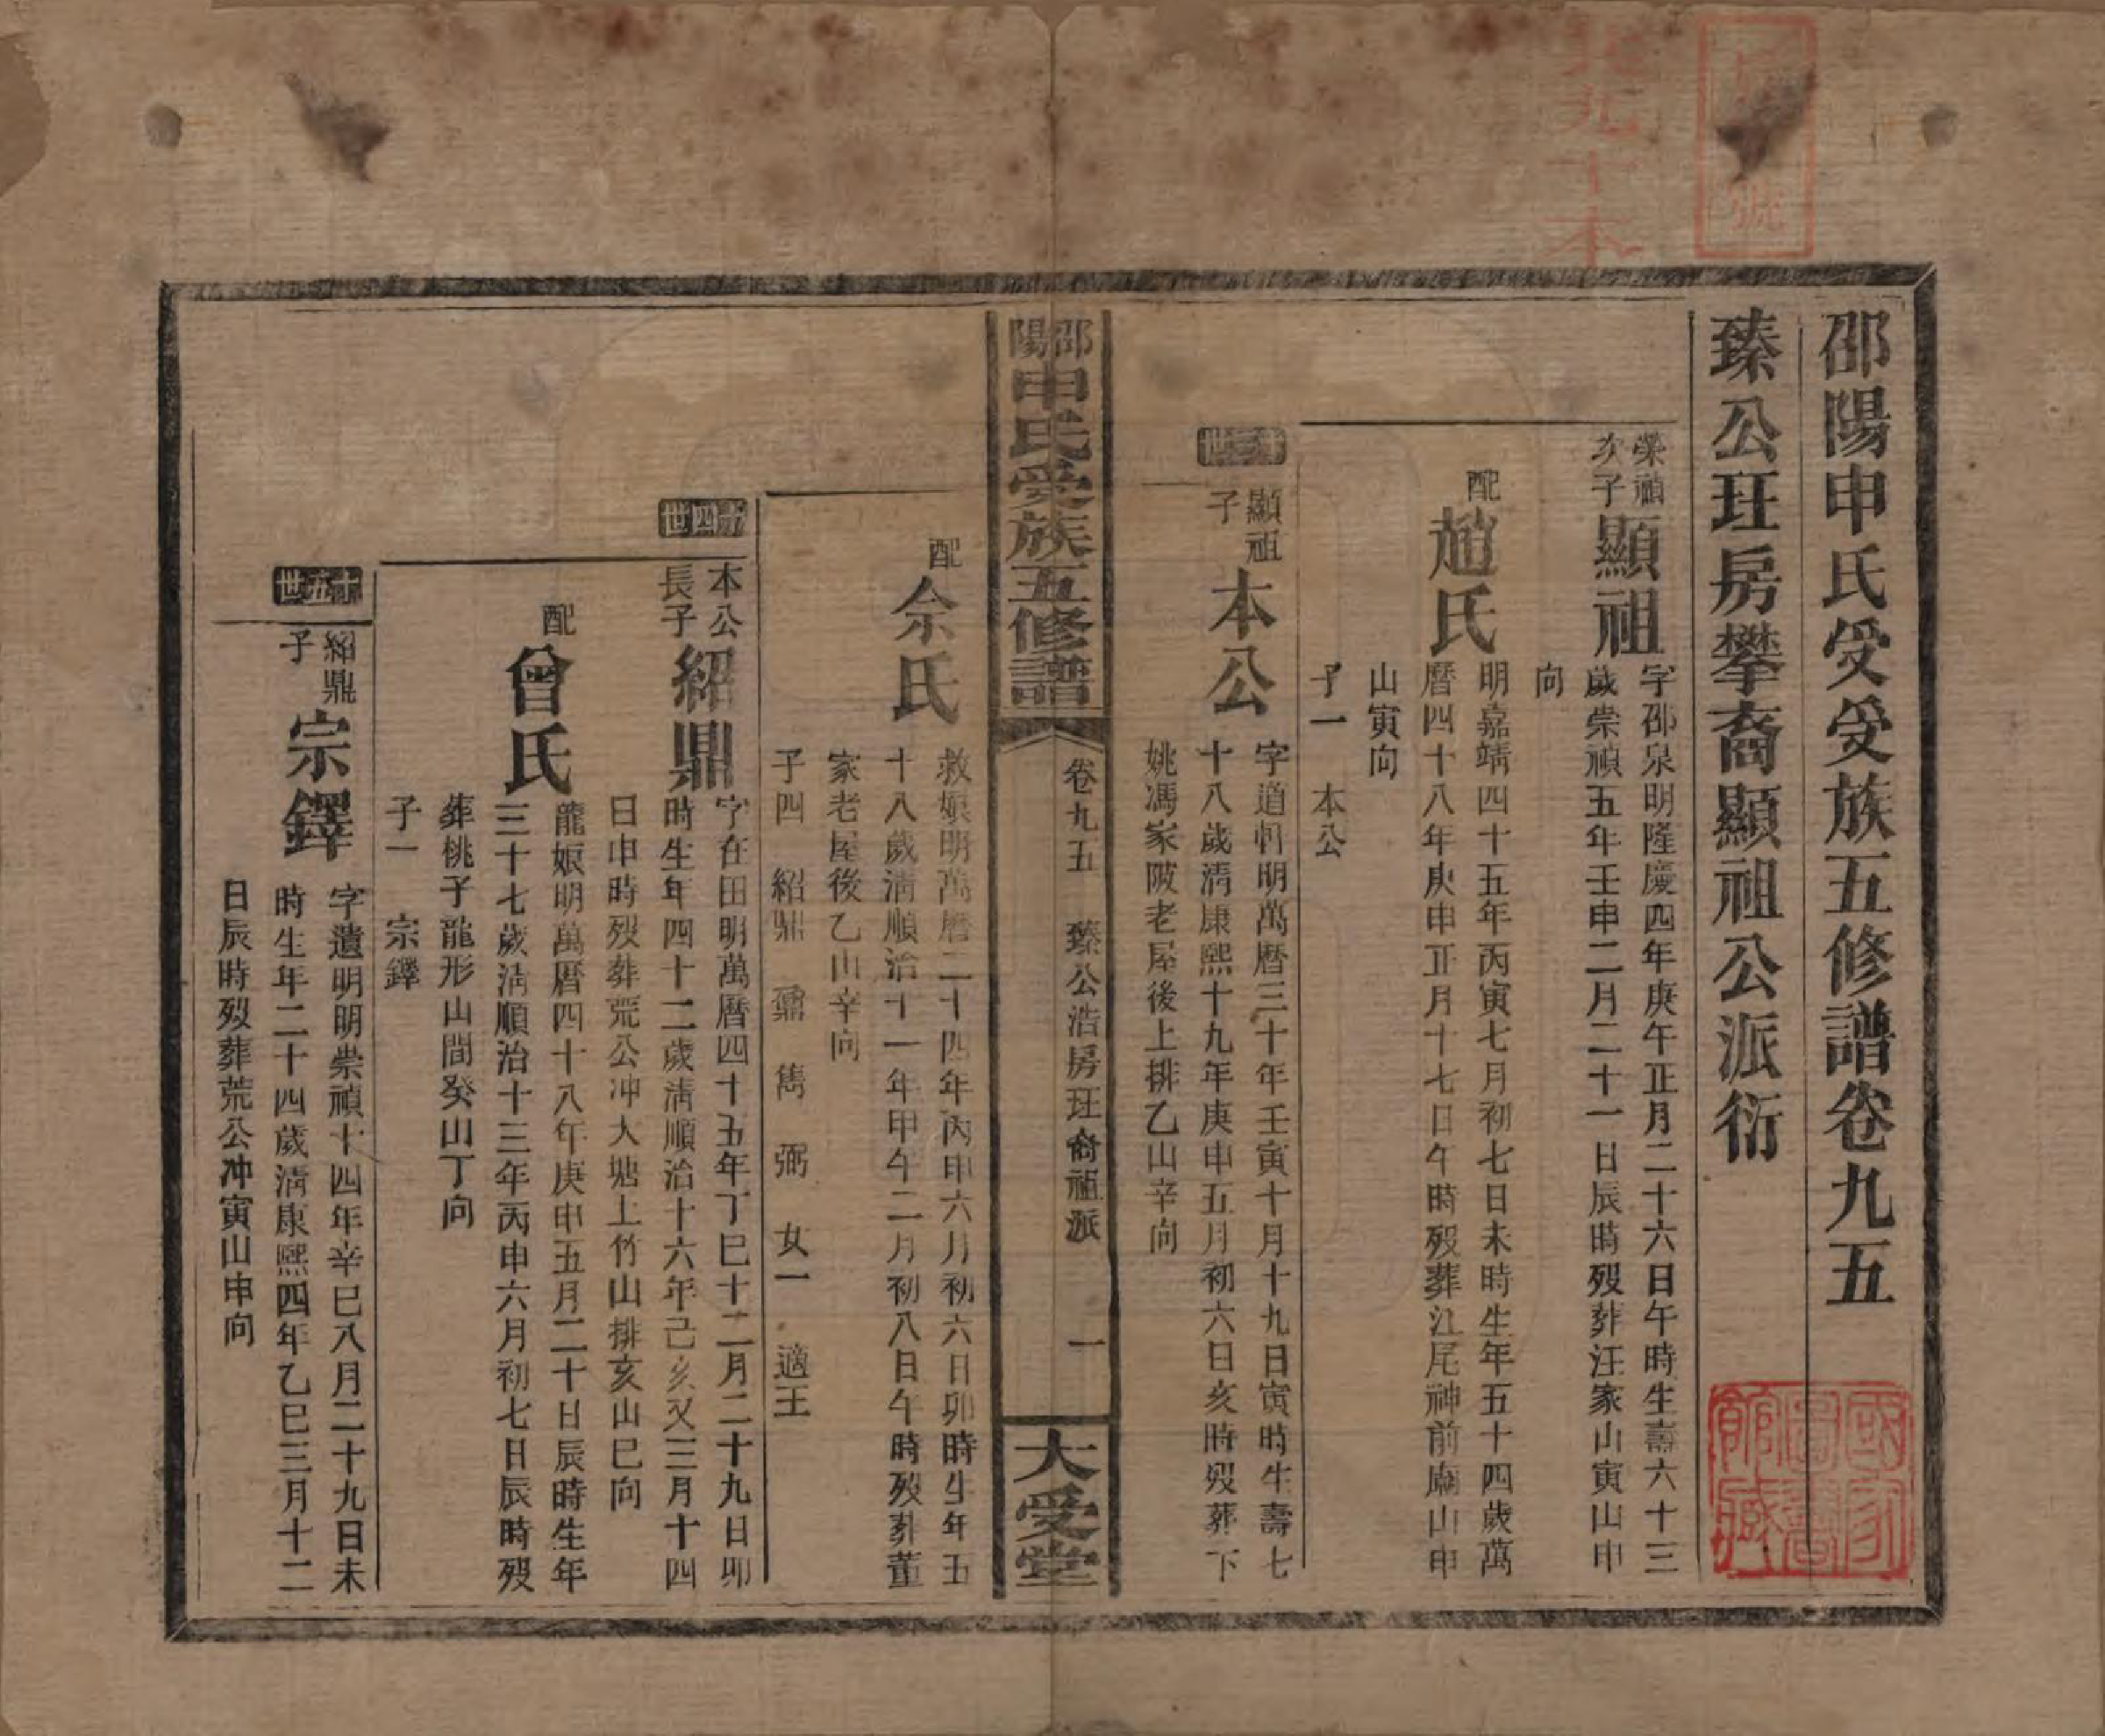 邵陽申氏受受族五修譜卷九五
臻公玨房攀裔顯祖公派衍
榮禎
次子
顯祖
字邵泉明隆慶四年庚午正月二十六日午時生壽六十三
歲崇禎五年壬申二月二十一日辰時歿葬汪家山寅山申
向
配
趙氏
明嘉靖四十五年丙寅七月初七日未時生年五十四歲萬
曆四十八年庚申正月十七日午時歿葬江尾神前廟山申
山寅向
子一 本公
十三世
顯祖
子
本公
字道軒明萬曆三十年壬寅十月十九日寅時生壽七
十八歲清康熙十九年庚申五月初六日亥時歿葬下
姚馮家陂老屋後上排乙山辛向
邵陽申氏受族五修譜
卷九五 臻公浩房玨裔祖派 一
大受堂
配
佘氏
救娘明萬曆二十四年丙申六月初六日卯時生年五
十八歲清順治十一年甲午二月初八日午時歿葬董
家老屋後乙山辛向
子四 紹鼎 鼐 雋 弼 女一 適王
十四世
本公
長子
紹鼎
字在田明萬曆四十五年丁巳十二月二十九日卯
時生年四十二歲清順治十六年己亥又三月十四
日申時歿葬荒公冲大塘上竹山排亥山巳向
配
曾氏
龍娘明萬曆四十八年庚申五月二十日辰時生年
三十七歲清順治十三年丙申六月初七日辰時歿
葬桃子龍形山間癸山丁向
子一 宗鐸
十五世
紹鼎
子
宗鐸
字遺明明崇禎十四年辛巳八月二十九日未
時生年二十四歲清康熙四年乙巳三月十二
日辰時歿葬荒公冲寅山申向
國家
圖書
館藏
九十本
號